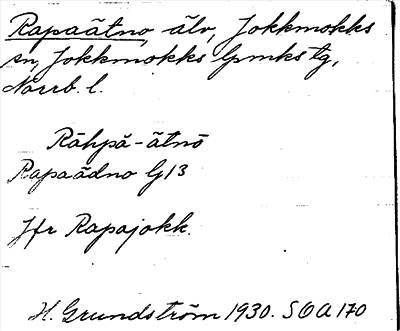 Rapaätno, älv, Jokkmokks
sn, Jokkmokks lpmks tg,
Norrb. l.
Råhpå-ätnō
Rapaädno G13
Jfr Rapajokk.
H. Grundström 1930. SOA 170